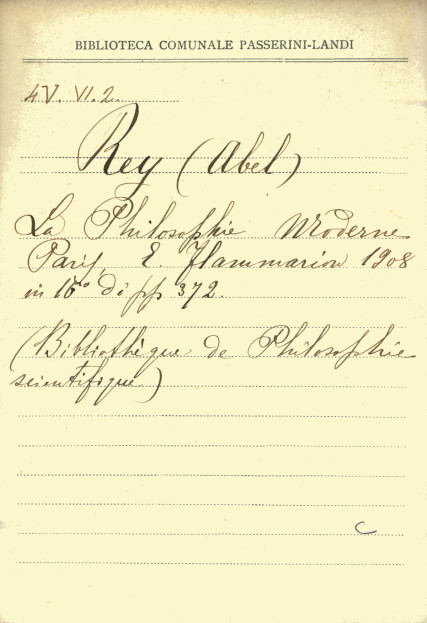 BIBLIOTECA COMUNALE PASSERINI-LANDI
4V. VI. 2.
Rey (Abel)
La Philosophie Moderne
Paris, E. Flammarion 1908
in 16° di pp 372.
(Bibliothèque de Philosophie
scientifique)
C